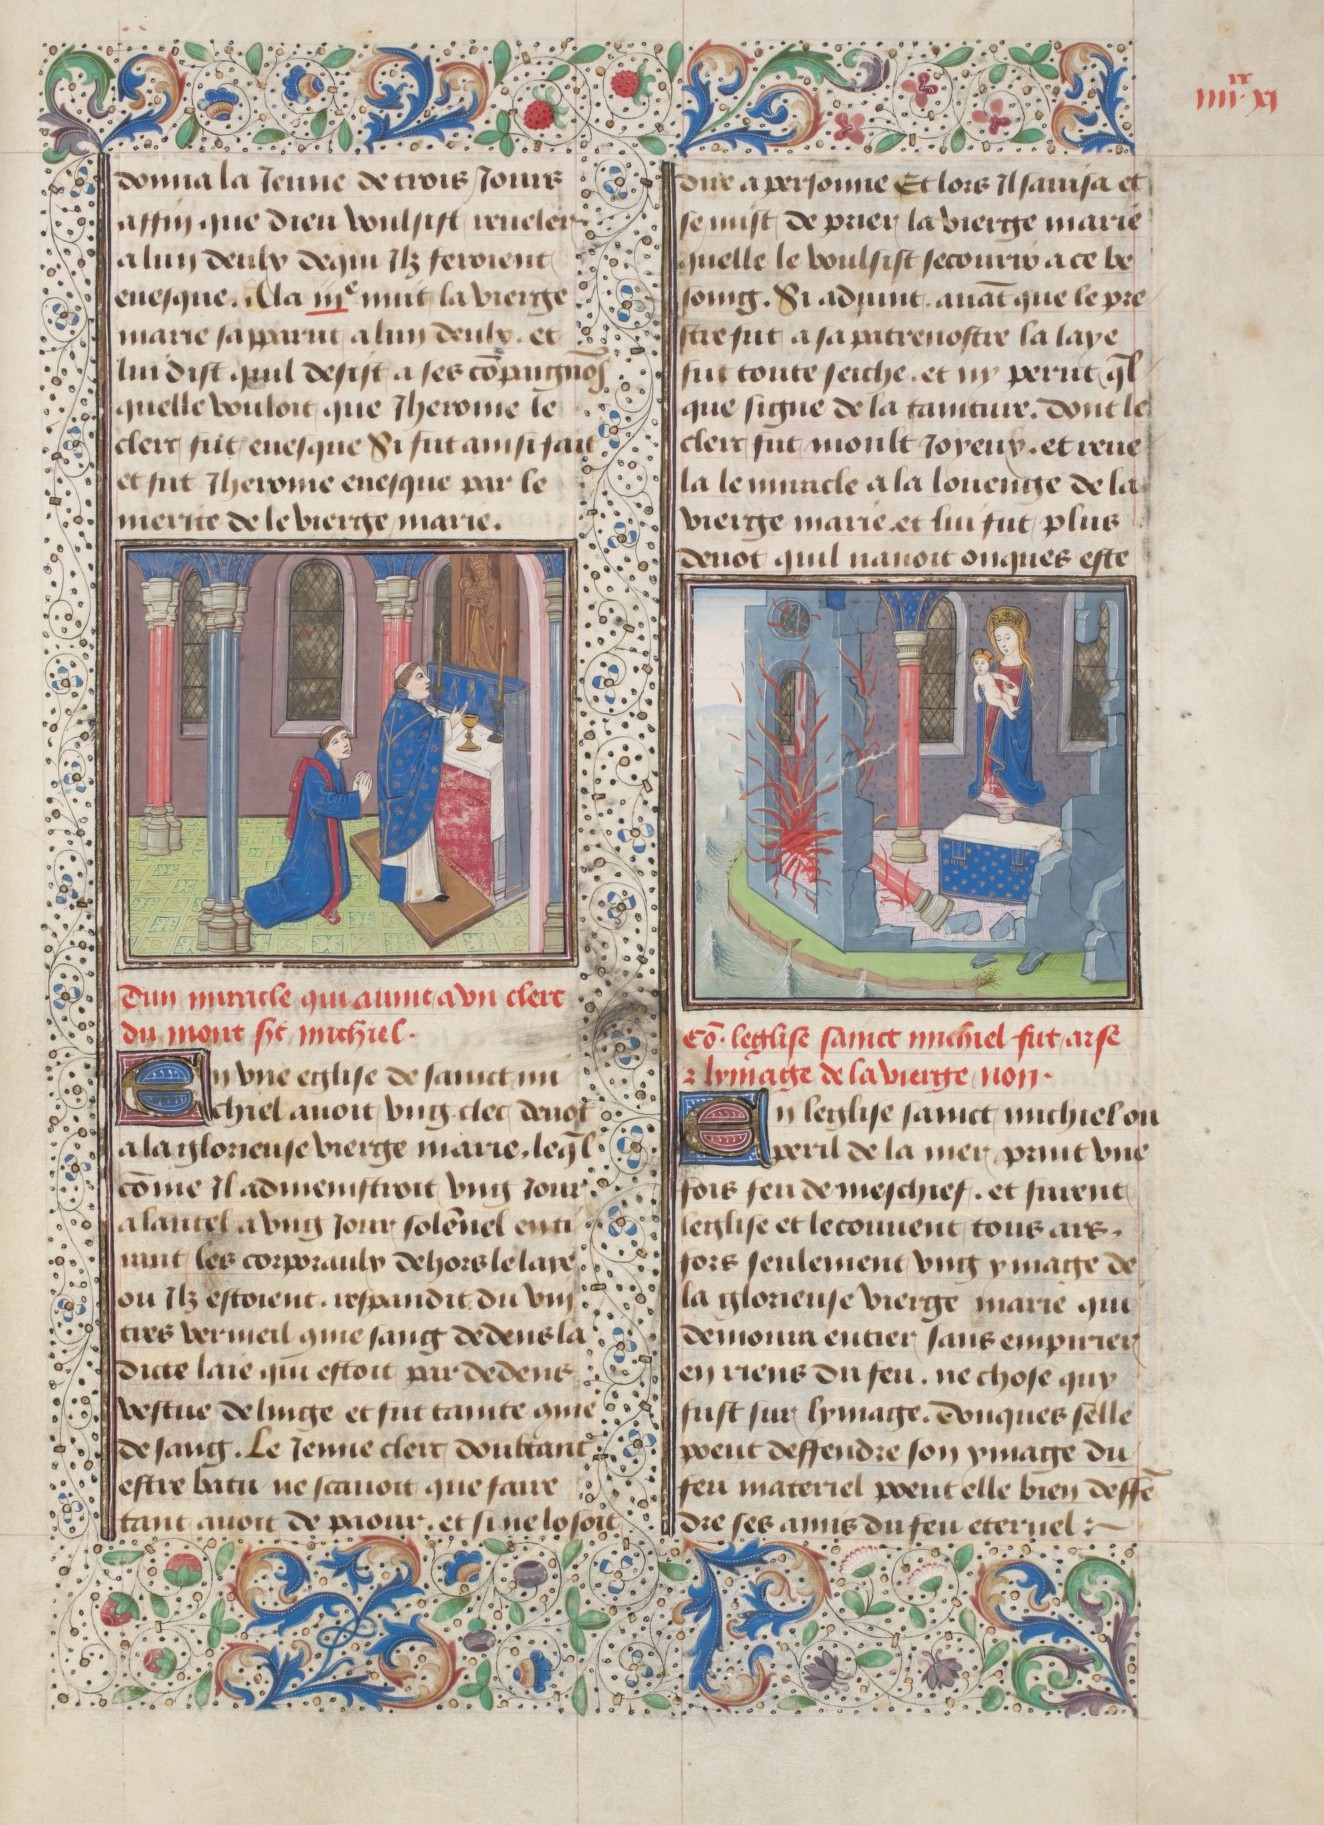 iiii^xx xi
donna la Jeune de trois Jours
affin que dieu voulsist reueler
a lun deulx de qui Ilz feroient
euesque. A la iii^e nuit la vierge
marie sapparut a lun deulx. et
lui dist quil desist a ses cõpaignõs
quelle vouloit que Iherome le
clerc fut euesque Si fut ainsi fait
et fut Iherome euesque par le
merite de le vierge marie.
Dun miracle qui auint a vn clerc
du mont st michiel.
En vne eglise de sainct mi
chiel auoit vng clec deuot
a la glorieuse vierge marie. leq̃l
cõme Il admenistroit vng Jour
a lautel a vng Jour solẽnel en ti
rant les corporaulx dehors le laye
ou Ilz estoient. respandit du vin
tres vermeil q̃me sang dedens la
dicte laie qui estoit par dedens
vestue de linge et fut tainte q̃me
de sang. Le Jenne clerc doubtant
estre batu ne scauoit que faire
tant auoit de paour. et si ne losoit
dire a personne Et lors Il sauisa et
se mist de prier la vierge marie
quelle le voulsist secourir a ce be
soing. Si aduint. auãt que le pre
stre fut a sa patrenostre la laye
fut toute seiche. et ny perut q̃l
que signe de la tainture. dont le
clerc fut moult Joyeux. et reue
la le miracle a la louenge de la
vierge marie. et lui fut plus
deuot quil nauoit onques este
Cõ. leglise sainct michiel fut arse
⁊ lymage de la vierge non.
En leglise sainct michiel ou
peril de la mer print vne
fois feu de meschief. et furent
leglise et le couuent tous ars.
fors seulement vng ymage de
la glorieuse vierge marie qui
demoura entier sans empirier
en riens du feu. ne chose quy
fust sur lymage. Donques selle
poeut deffendre son ymage du
feu materiel poeut elle bien deffẽ
dre ses amis du feu eternel :~